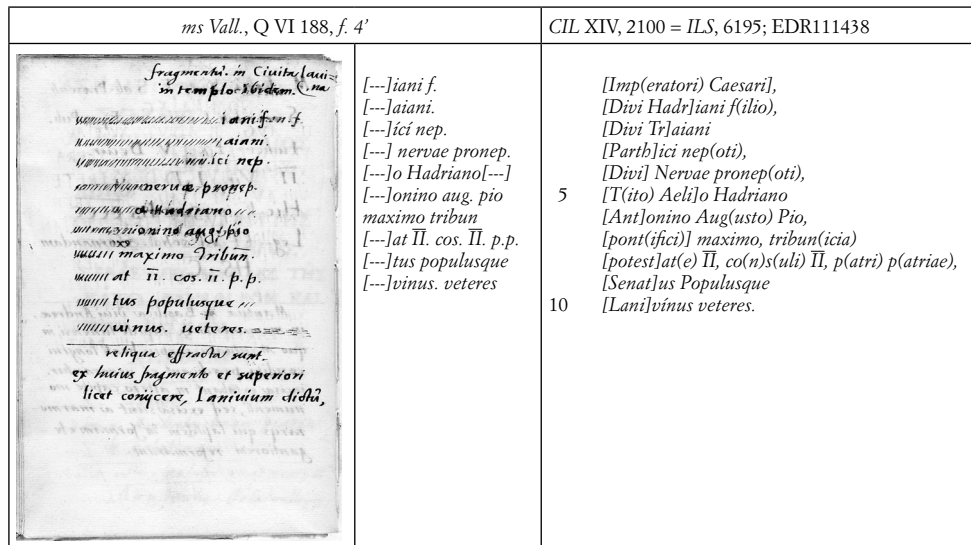 ms Vall., Q VI 188, f. 4’
CIL XIV, 2100 = ILS, 6195; EDR111438
fragmentũ. in Ciuita laui=
in templo ibidem. na
iani fon. f.
aiani.
ici nep.
neruæ pronep.
o Hadriano
onino aug. pio
maximo Tribun.
at I̅I̅. cos. I̅I̅. p. p.
tus populusque
uinus. ueteres.
reliqua effracta sunt.
ex huius fragmento et superiori
licet conijcere, Laniuium dictũ,
[---]iani f.
[---]aiani.
[---]ící nep.
[---] nervae pronep.
[---]o Hadriano[---]
[---]onino aug. pio
maximo tribun
[---]at I̅I̅. cos. I̅I̅. p.p.
[---]tus populusque
[---]vinus. veteres
[Imp(eratori) Caesari],
[Divi Hadr]iani f(ilio),
[Divi Tr]aiani
[Parth]ici nep(oti),
[Divi] Nervae pronep(oti),
5 [T(ito) Aeli]o Hadriano
[Ant]onino Aug(usto) Pio,
[pont(ifici)] maximo, tribun(icia)
[potest]at(e) I̅I̅, co(n)s(uli) I̅I̅, p(atri) p(atriae),
[Senat]us Populusque
10 [Lani]vínus veteres.